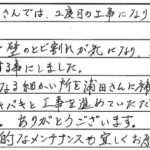 さんでは、2度目の工事になり
壁のヒビ割れが気になり、
する事にしました。
なる細かい所を浦田さんに補
工事を進めていただ
ありがとうございます。
的なメンテナンスも宜しくお